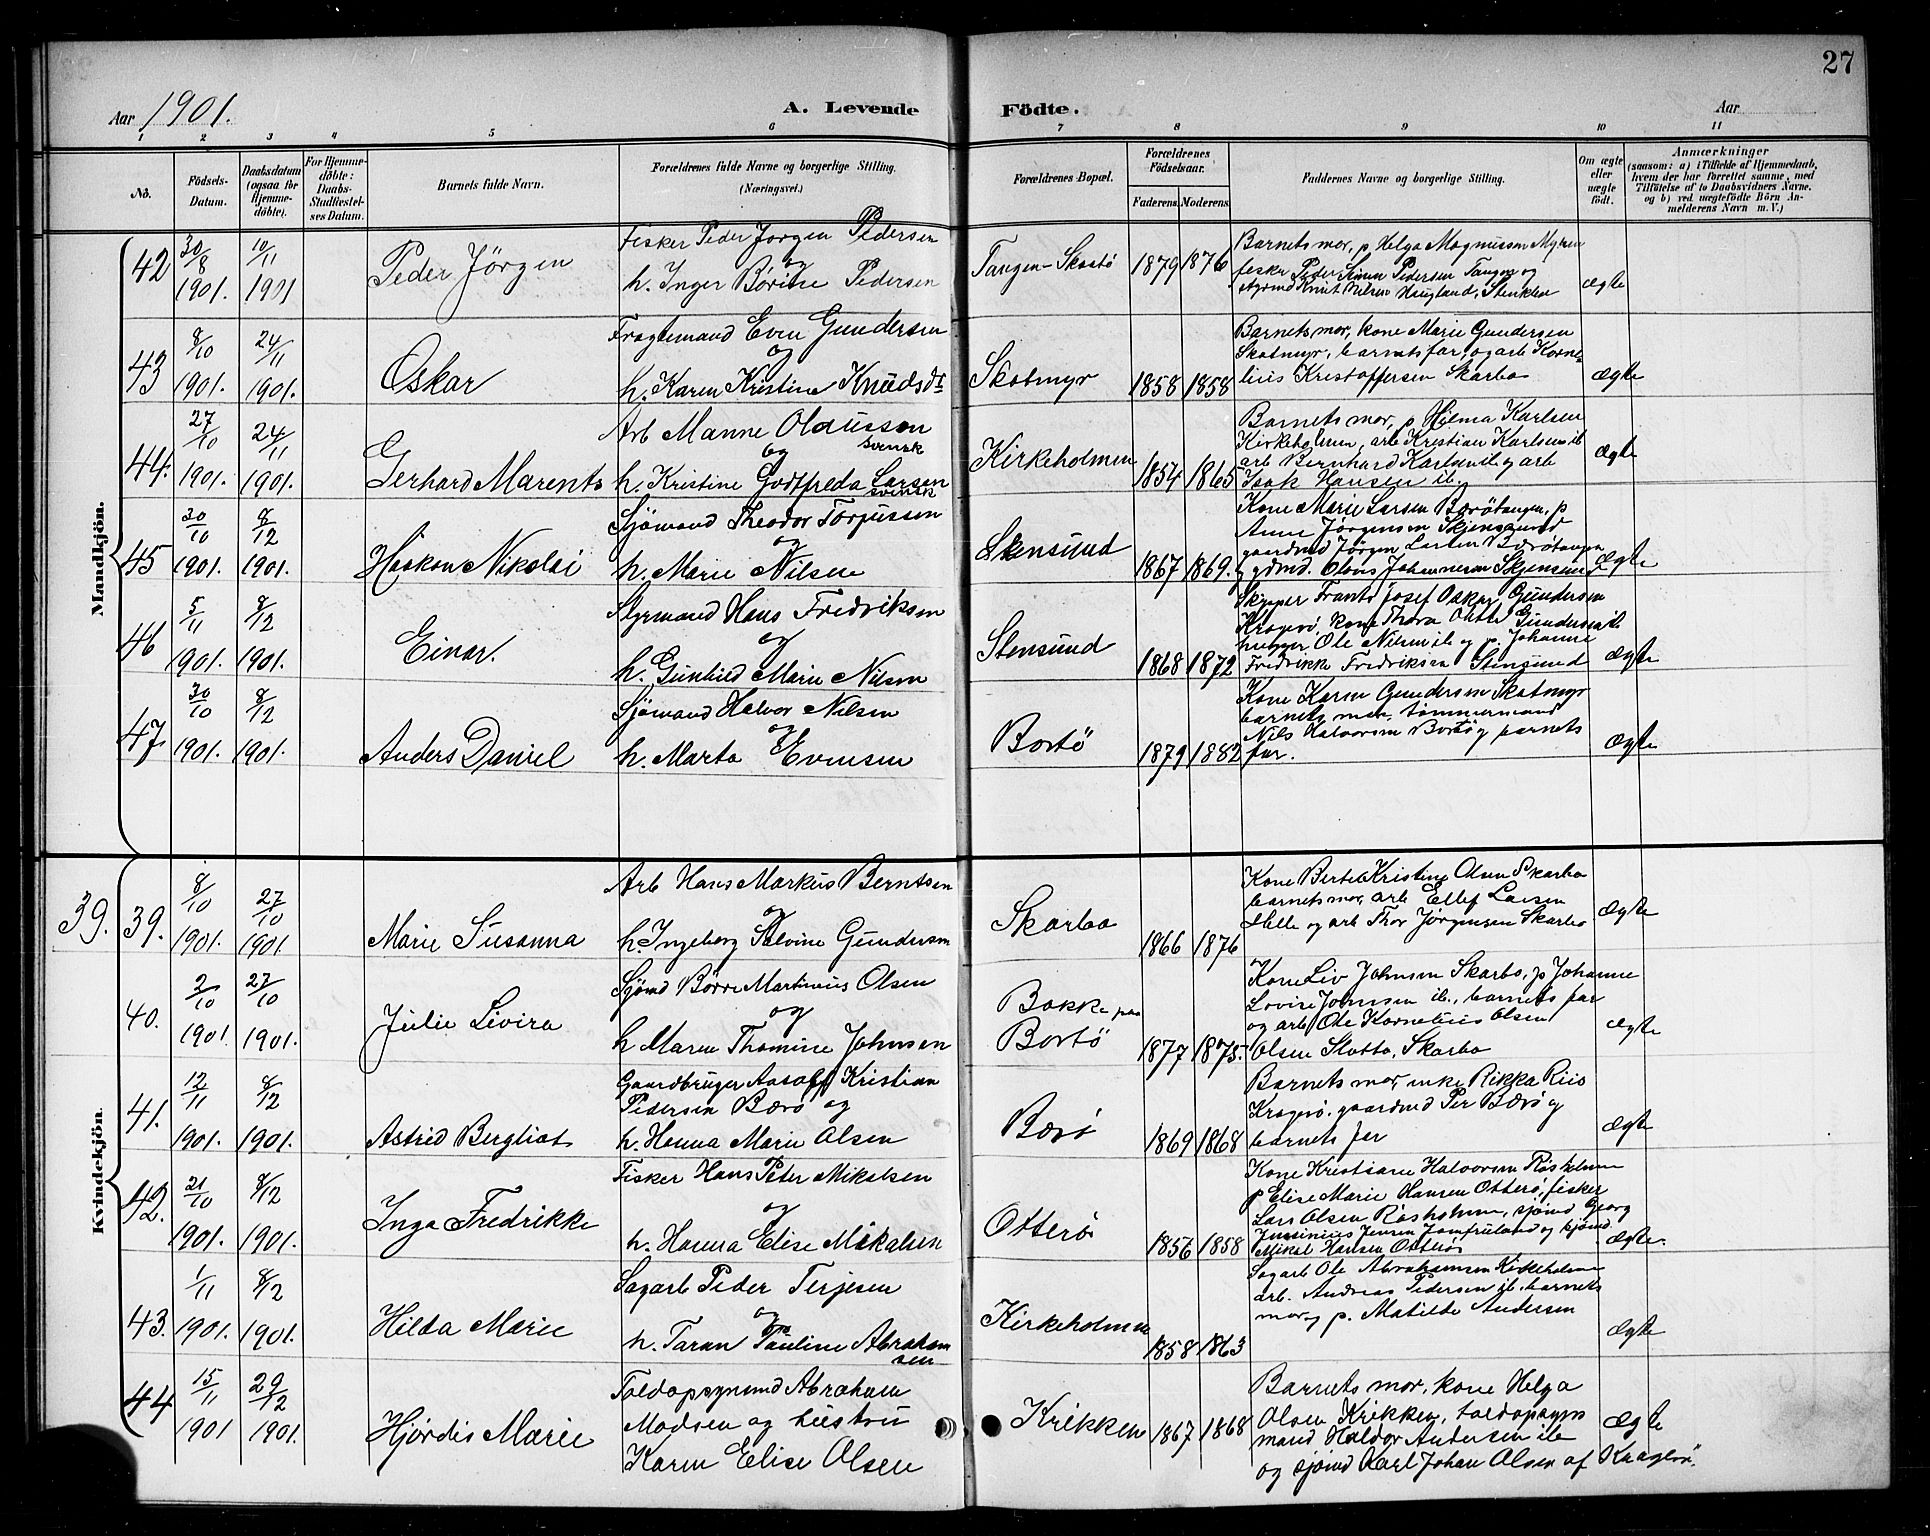 27
Aar 1901.
A. Levende Födte.
Aar
1 2 3 4 5 6 7 8 9 10 11
No.
Födsels-Datum.
Daabsdatum (ogsaa for Hjemme-döbte).
For Hjemme-döbte: Daabs-Stadfæstel-ses Datum.
Barnets fulde Navn.
Forældrenes fulde Navne og borgerlige Stilling. (Næringsvei.)
Forældrenes Bopæl.
Forældrenes Födselsaar.
Faderens. Moderens.
Faddernes Navne og borgerlige Stilling.
Om ægte eller uægte födt.
Anmærkninger
(saasom: a) i Tilfælde af Hjemmedaab,
hvem der har forrettet samme, med
Tilföielse af to Daabsvidners Navne.
og b) ved uægtefödte Börn An-
melderens Navn m. V.)
Mandkjön.
42 30/8 1901. 10/11 1901 Peder Jörgen
Fisker Peder Jörgen Pedersen
og
h. Inger Börine Pedersen
Tangen-Skaatö 1879 1876
Barnets mor, p Helga Magnussen Myren
fisker Peder Simon Pedersen Tangen og
styrmd Knut Nilsen Haugland, Stenklev
ægte
43 8/10 1901. 24/11 1901. Oskar
Fragtemand Even Gundersen
og
h. Karen Kristine Knudsdt
Skotmyr 1858 1858
Barnets mor, kone Marie Gundersen
Skotmyr, barnets far, og arb Korne-
lius Kristoffersen Skarbo
ægte
44. 27/10 1901. 24/11 1901. Gerhard Marents
Arb Manne Olausson
svensk
og
h. Kristine Godtfreda Larsen
svensk
Kirkeholmen 1854 1865
Barnets mor, p Hjelma Karlsen
Kirkeholmen, arb Kristian Karlsen ib
arb Bernhard Karlsen ib og arb
Isak Hansen ib.
ægte
45 20/10 1901. 8/12 1901. Haakon Nikolai
Sjömand Theodor Torjussen
og
h. Marie Nilsen
Stensund 1867 1869.
Kone Marie Larsen Bærötangen, p
Anne Jörgensen Skjensund
gaardmd Jörgen Larsen Bærötangen
og gdmd. Olavis Johannesen Skjensund
ægte
46 5/11 1901. 8/12 1901. Einar.
Styrmand Hans Fredriksen
og
h. Gunhild Marie Nilsen
Stensund 1868 1872
Skipper Frants Josef Oskar Gundersen
Kragerö, kone Thora Otilie Gundersen ib
Ole Nilsen ib og p. Johanne
Fredrikke Fredriksen Stensund
ægte
47 30/10 1901. 8/12 1901. Anders Daniel
Sjömand Halvor Nilsen
og
h. Marta Evensen
Bortö 1879 1882
Kone Karen Gundersen Skotmyr
barnets mor, tömmermand
Nils Halvorsen Bortö og barnets
far.
ægte
Kvindekjön.
39. 39. 8/10 1901. 27/10 1901 Marie Susanna
Arb Hans Markus Berntsen
og
h. Ingeborg Salvine Gundersen
Skarbo 1866 1876
Kone Berte Kristine Olsen Skarbo
barnets mor, arb Ellef Larsen
Helle og arb Thor Jörgensen Skarbo
ægte
40. 2/10 1901. 27/10 1901. Julie Livira
Sjömd Börre Martinius Olsen
og
h Maren Thomine Johnsen
Bakke paa
Bortö 1877 1875.
Kone Liv Johnsen Skarbo, p Johanne
Lovise Johnsen ib, barnets far
og arb Ole Kornelius Olsen
Olsen Slotta, Skarbo
ægte
41. 12/11 1901. 8/12 1901. Astrid Bergliot
Gaardbruger Aasolf Kristian
Pedersen Bærö og
h. Hanna Marie Olsen
Bærö 1869 1868
Barnets mor, enke Rikka Riis
Kragerö, gaardmd Per Bærö og
barnets far
ægte
42. 21/10 1901. 8/12 1901. Inga Fredrikke
Fisker Hans Peter Mikalsen
og
h. Hanna Elise Mikalsen
Otterö 1856 1858
Kone Kristiane Halvorsen Rösholmen
p Elise Marie Hansen Otterö, fisker
Lars Olsen Rösholmen, sjömd Georg
Jensen Jomfruland og sjömd
Mikal Hansen Otterö
ægte.
43. 1/11 1901. 8/12 1901. Hilda Marie
Sagarb Peder Terjesen
og
h. Taran Pauline Abraham
sen
Kirkeholmen 1858 1863
Sagarb Ole Abrahamsen Kirkeholmen
arb. Andreas Pedersen ib. barnets
mor og p. Matilde Andersen
ægte
44 15/11 1901 29/12 1901. Hjördis Marie
Toldopsynmd Abraham
Madsen og hustru
Karen Elise Olsen
Krikken 1867 1868
Barnets mor, kone Helga
Olsen Krikken, toldopsyns
mand Haldor Andersen ib
og sjömd Karl Johan Olsen af Kragerö.
ægte